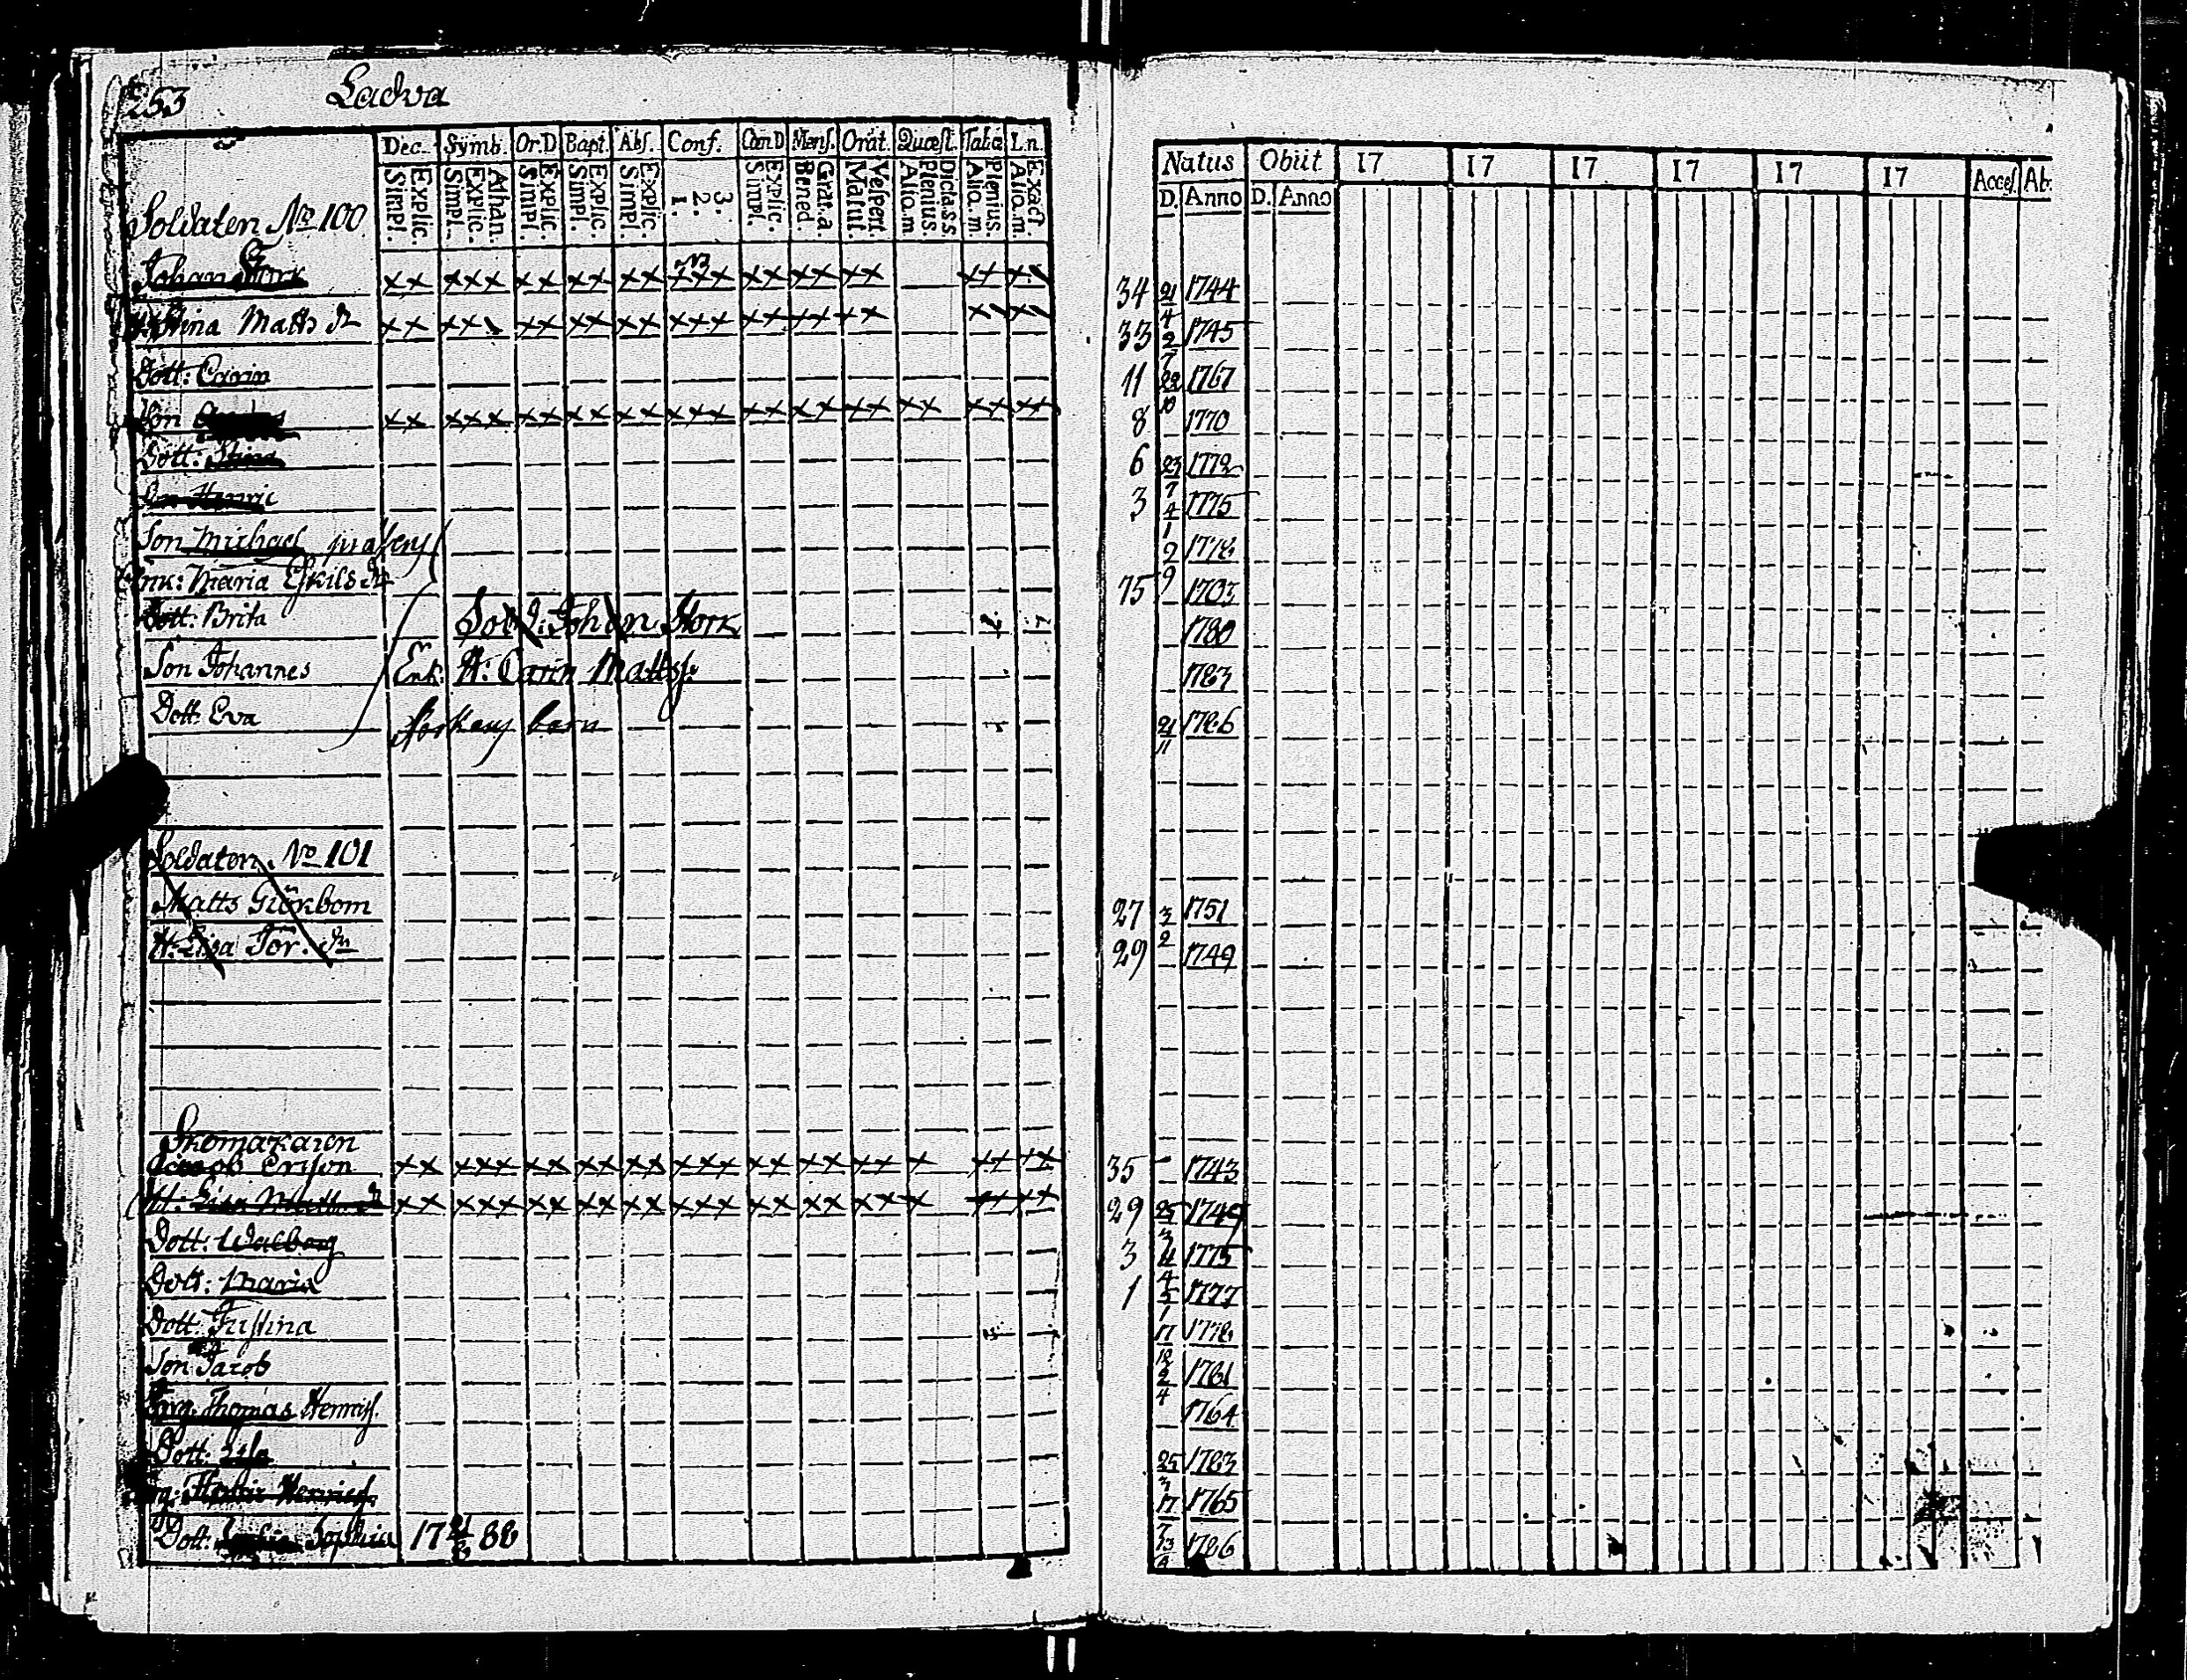 253 Ladva
Dec. Symb. Or.D Bapt. Abs. Conf. Cœn.D Mens. Orat. Quæst. Tabæ Ln.
Explic. Simpl. Athan. Explic. Simpl. Explic. Simpl. Explic. Simpl. Explic. Simpl. 3. 2. 1. Explic. Simpl. Grat.a. Bened. Vespert Matut. Dicta.s.s Plenius Aliq.m Plenius. Aliq.m Exact. Aliq.m.
Natus Obiit 17 17 17 17 17 17 Acces. Ab.
D. Anno D. Anno
Soldaten No 100
Johan Stork xx xxx xx xx xx xxx xx xx xx xx xx 34 21/4 1744
Stina Matts dr xx xxx xx xx xx xxx xx xx xx xx xx 33 2/7 1745
Dott: Carin 11 22/10 1767
Son xx xxx xx xx xx xxx xx xx xx xx xx xx 8 1770
Dott: Stina 6 23/7 1772
Son Henric 3 4/1 1775
Son Michael 2/9 1778
Enk: Maria Eskils dr 75 1703
Dott: Brita Sold: Johan Stork 1780
Son Johannes Enk: H: Carin Matts 1783
Dott: Eva Storkens barn 21/11 1786
Soldaten No 101
Matts Giökbom 27 3/2 1751
H: Lisa dr 29 1749
Skomakaren
Jacob Erisson xx xxx xx xx xx xxx xx xx xx x xx xx 35 1743
H: Lisa Matts dr xx xxx xx xx xx xxx xx xx xx x xx xx 29 25/3 1749
Dott: Walborg 3 11/4 1775
Dott: Maria 1 5/1 1777
Dott: Justina 17/12 1778
Son Jacob 2/4 1781
Thomas Henrics. 1764
Dott: 25/3 1783
Henrics. 17/7 1765
Dott: Sophia 17 88 1786